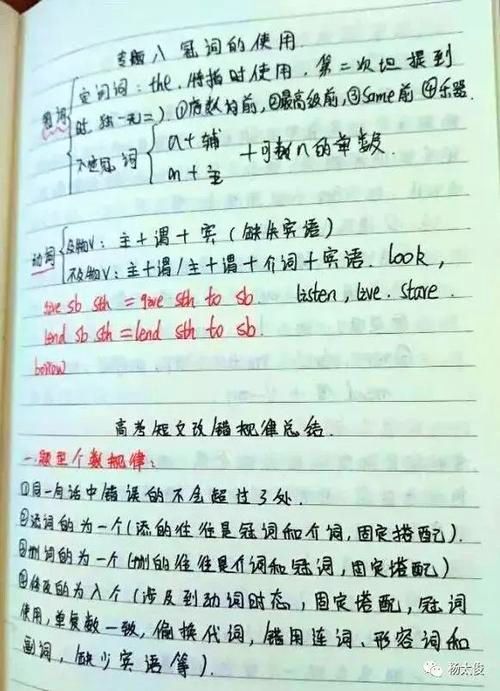 专题八 冠词的使用.
冠词 定冠词: the. 特指时使用. 第二次提到
时. 独一无二) ①序数词前, ②最高级前, ③Same前 ④乐器.
不定冠词 a+辅
an+主 +可数n的单数.
动词 及物V: 主+谓+宾 (缺失宾语)
不及物V: 主+谓/主+谓+介词+宾语. look,
give sb sth = give sth to sb. listen, live. stare.
lend sb sth = lend sth to sb.
borrow
高考短文改错规律总结.
一.题型个数规律:
①同一句话中错误的不会超过3处.
②添词的为一个(添的往往是冠词和介词,固定搭配).
③删词的为一个(删的往往是介词和冠词,固定搭配)
④修改的为八个(涉及到动词时态,固定搭配,冠词
使用,单复数一致,偷换代词,错用连词、形容词和
副词,缺少宾语等).
杨太俊